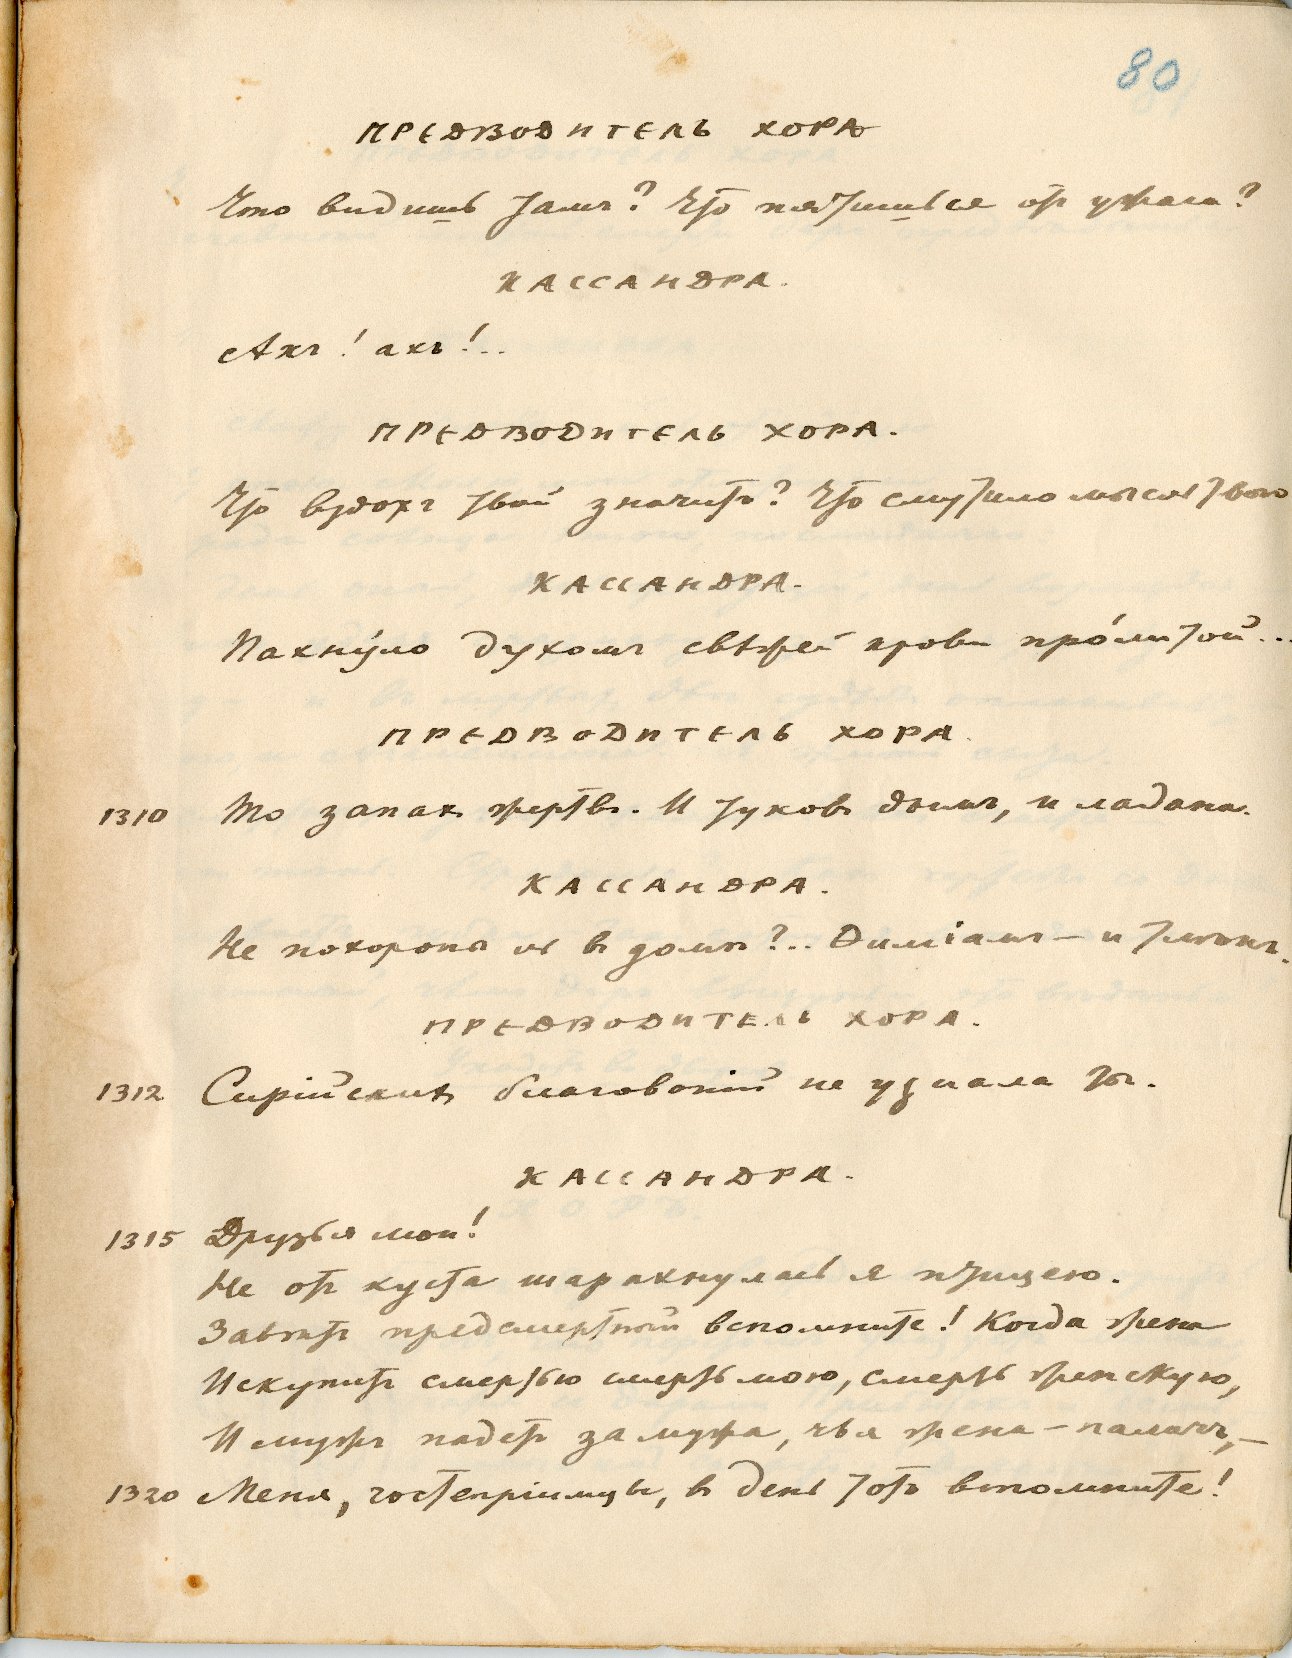 80
ПРЕДВОДИТЕЛЬ ХОРА
Что видишь тамъ? Что пятишься отъ ужаса?
КАССАНДРА.
Ахъ! ахъ!..
ПРЕДВОДИТЕЛЬ ХОРА.
Что вздохъ твой значитъ? Что смутило мысль твою
КАССАНДРА.
Пахну́ло духомъ свѣжей крови про́литой...
ПРЕДВОДИТЕЛЬ ХОРА.
1310 То запахъ жертвъ. И туковъ дымъ, и ладана.
КАССАНДРА.
Не похороны ль въ домѣ?.. Ѳиміамъ – и тлѣнъ.
ПРЕДВОДИТЕЛЬ ХОРА.
1312 Сирійскихъ благовоній не узнала ты.
КАССАНДРА.
1315 Друзья мои!
Не отъ куста шарахнулась я птицею.
Завѣтъ предсмертный вспомните! Когда жена
Искупитъ смертью смерть мою, смерть женскую,
И мужъ падетъ за мужа, чья жена – палачъ, –
1320 Меня, гостепріимцы, въ день тотъ вспомните!